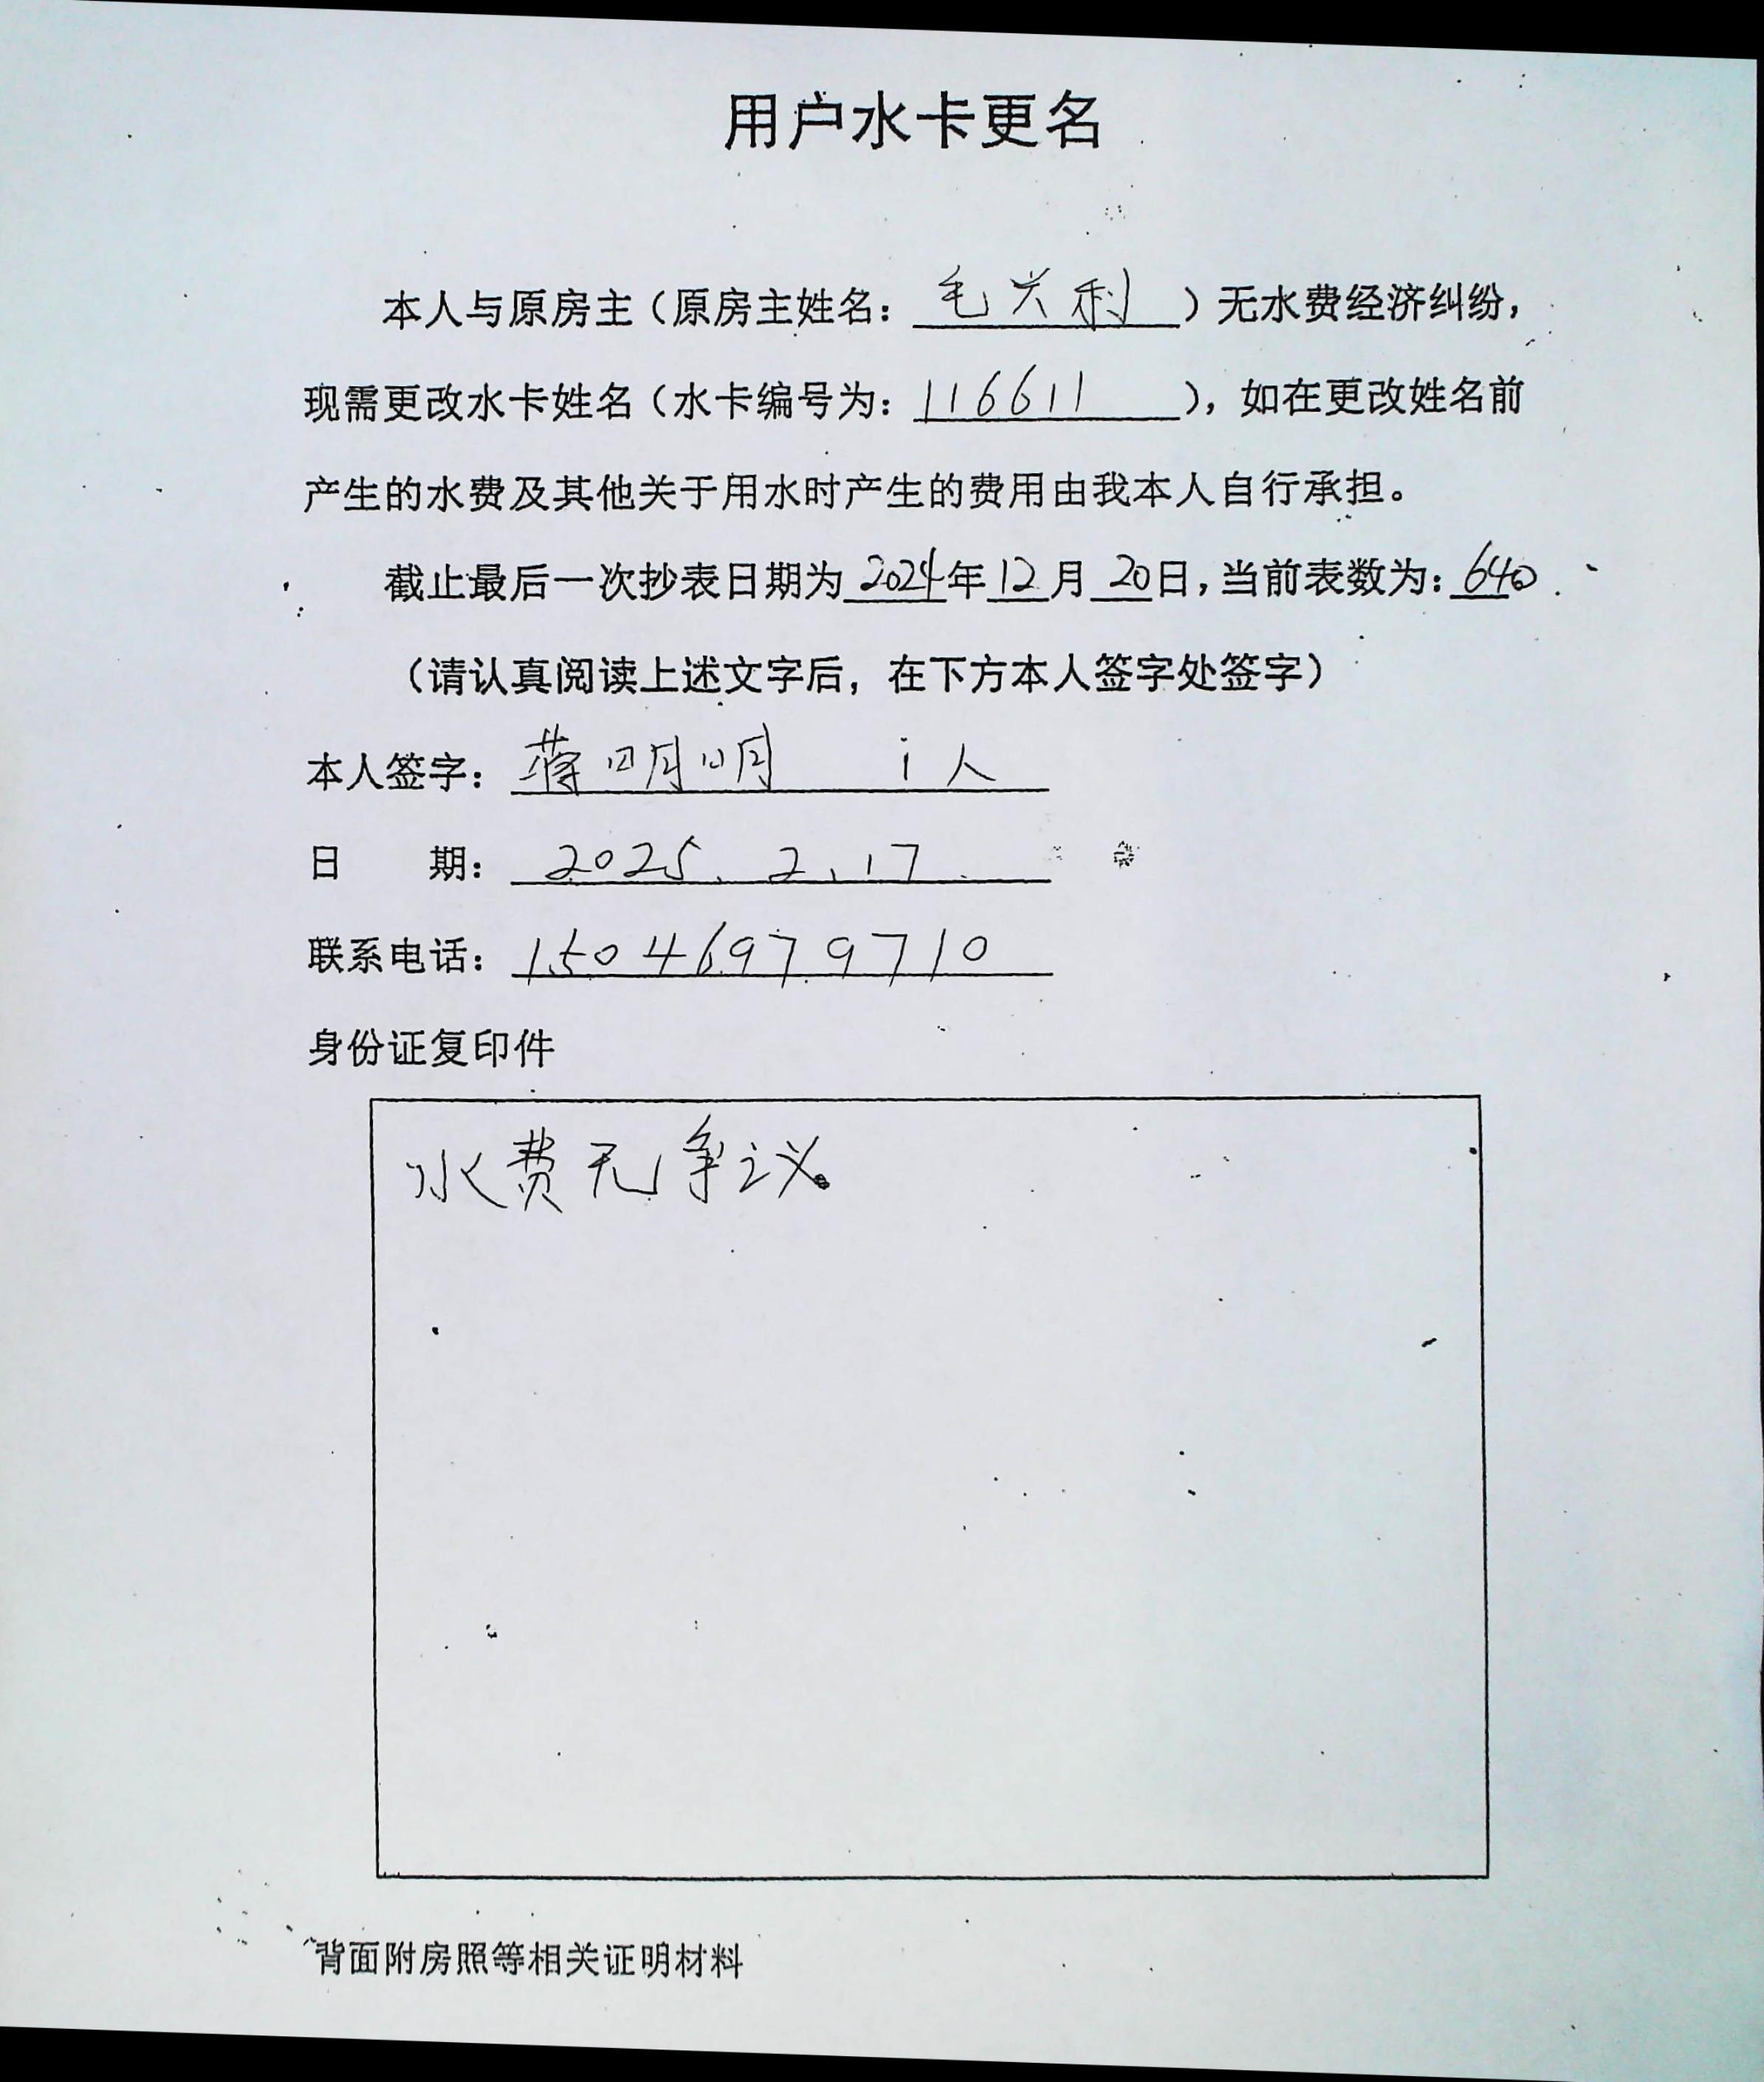 用户水卡更名
本人与原房主（原房主姓名：毛兴利）无水费经济纠纷，
现需更改水卡姓名（水卡编号为：116611），如在更改姓名前
产生的水费及其他关于用水时产生的费用由我本人自行承担。
截止最后一次抄表日期为2024年12月20日，当前表数为：640.
（请认真阅读上述文字后，在下方本人签字处签字）
本人签字：蒋明明 i人
日 期：2025.2.17.
联系电话：15046979710
身份证复印件
水费无争议。
背面附房照等相关证明材料